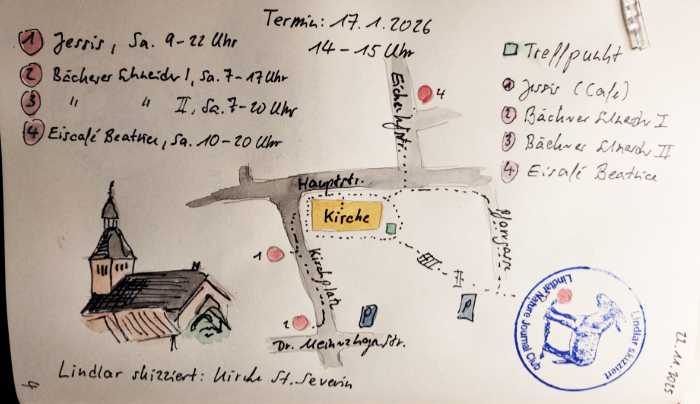 Termin: 17.1.2026
14-15 Uhr
1 Jessis, Sa. 9-22 Uhr
2 Bäckerei Schneider I, Sa. 7-17 Uhr
3 " " II, Sa. 7-20 Uhr
4 Eiscafé Beatrice, Sa. 10-20 Uhr
Treffpunkt
1 Jessis (Café)
2 Bäckerei Schneider I
3 Bäckerei Schneider II
4 Eiscafé Beatrice
Eichenhofstr.
4
Hauptstr.
Kirche
Pfarrgasse
1
Kirchplatz
2
P
P
Dr. Meinerzhagenstr.
Lindlar skizziert
Lindlar Nature Journal Club
22.11.2025
Lindlar skizziert: Kirche St. Severin